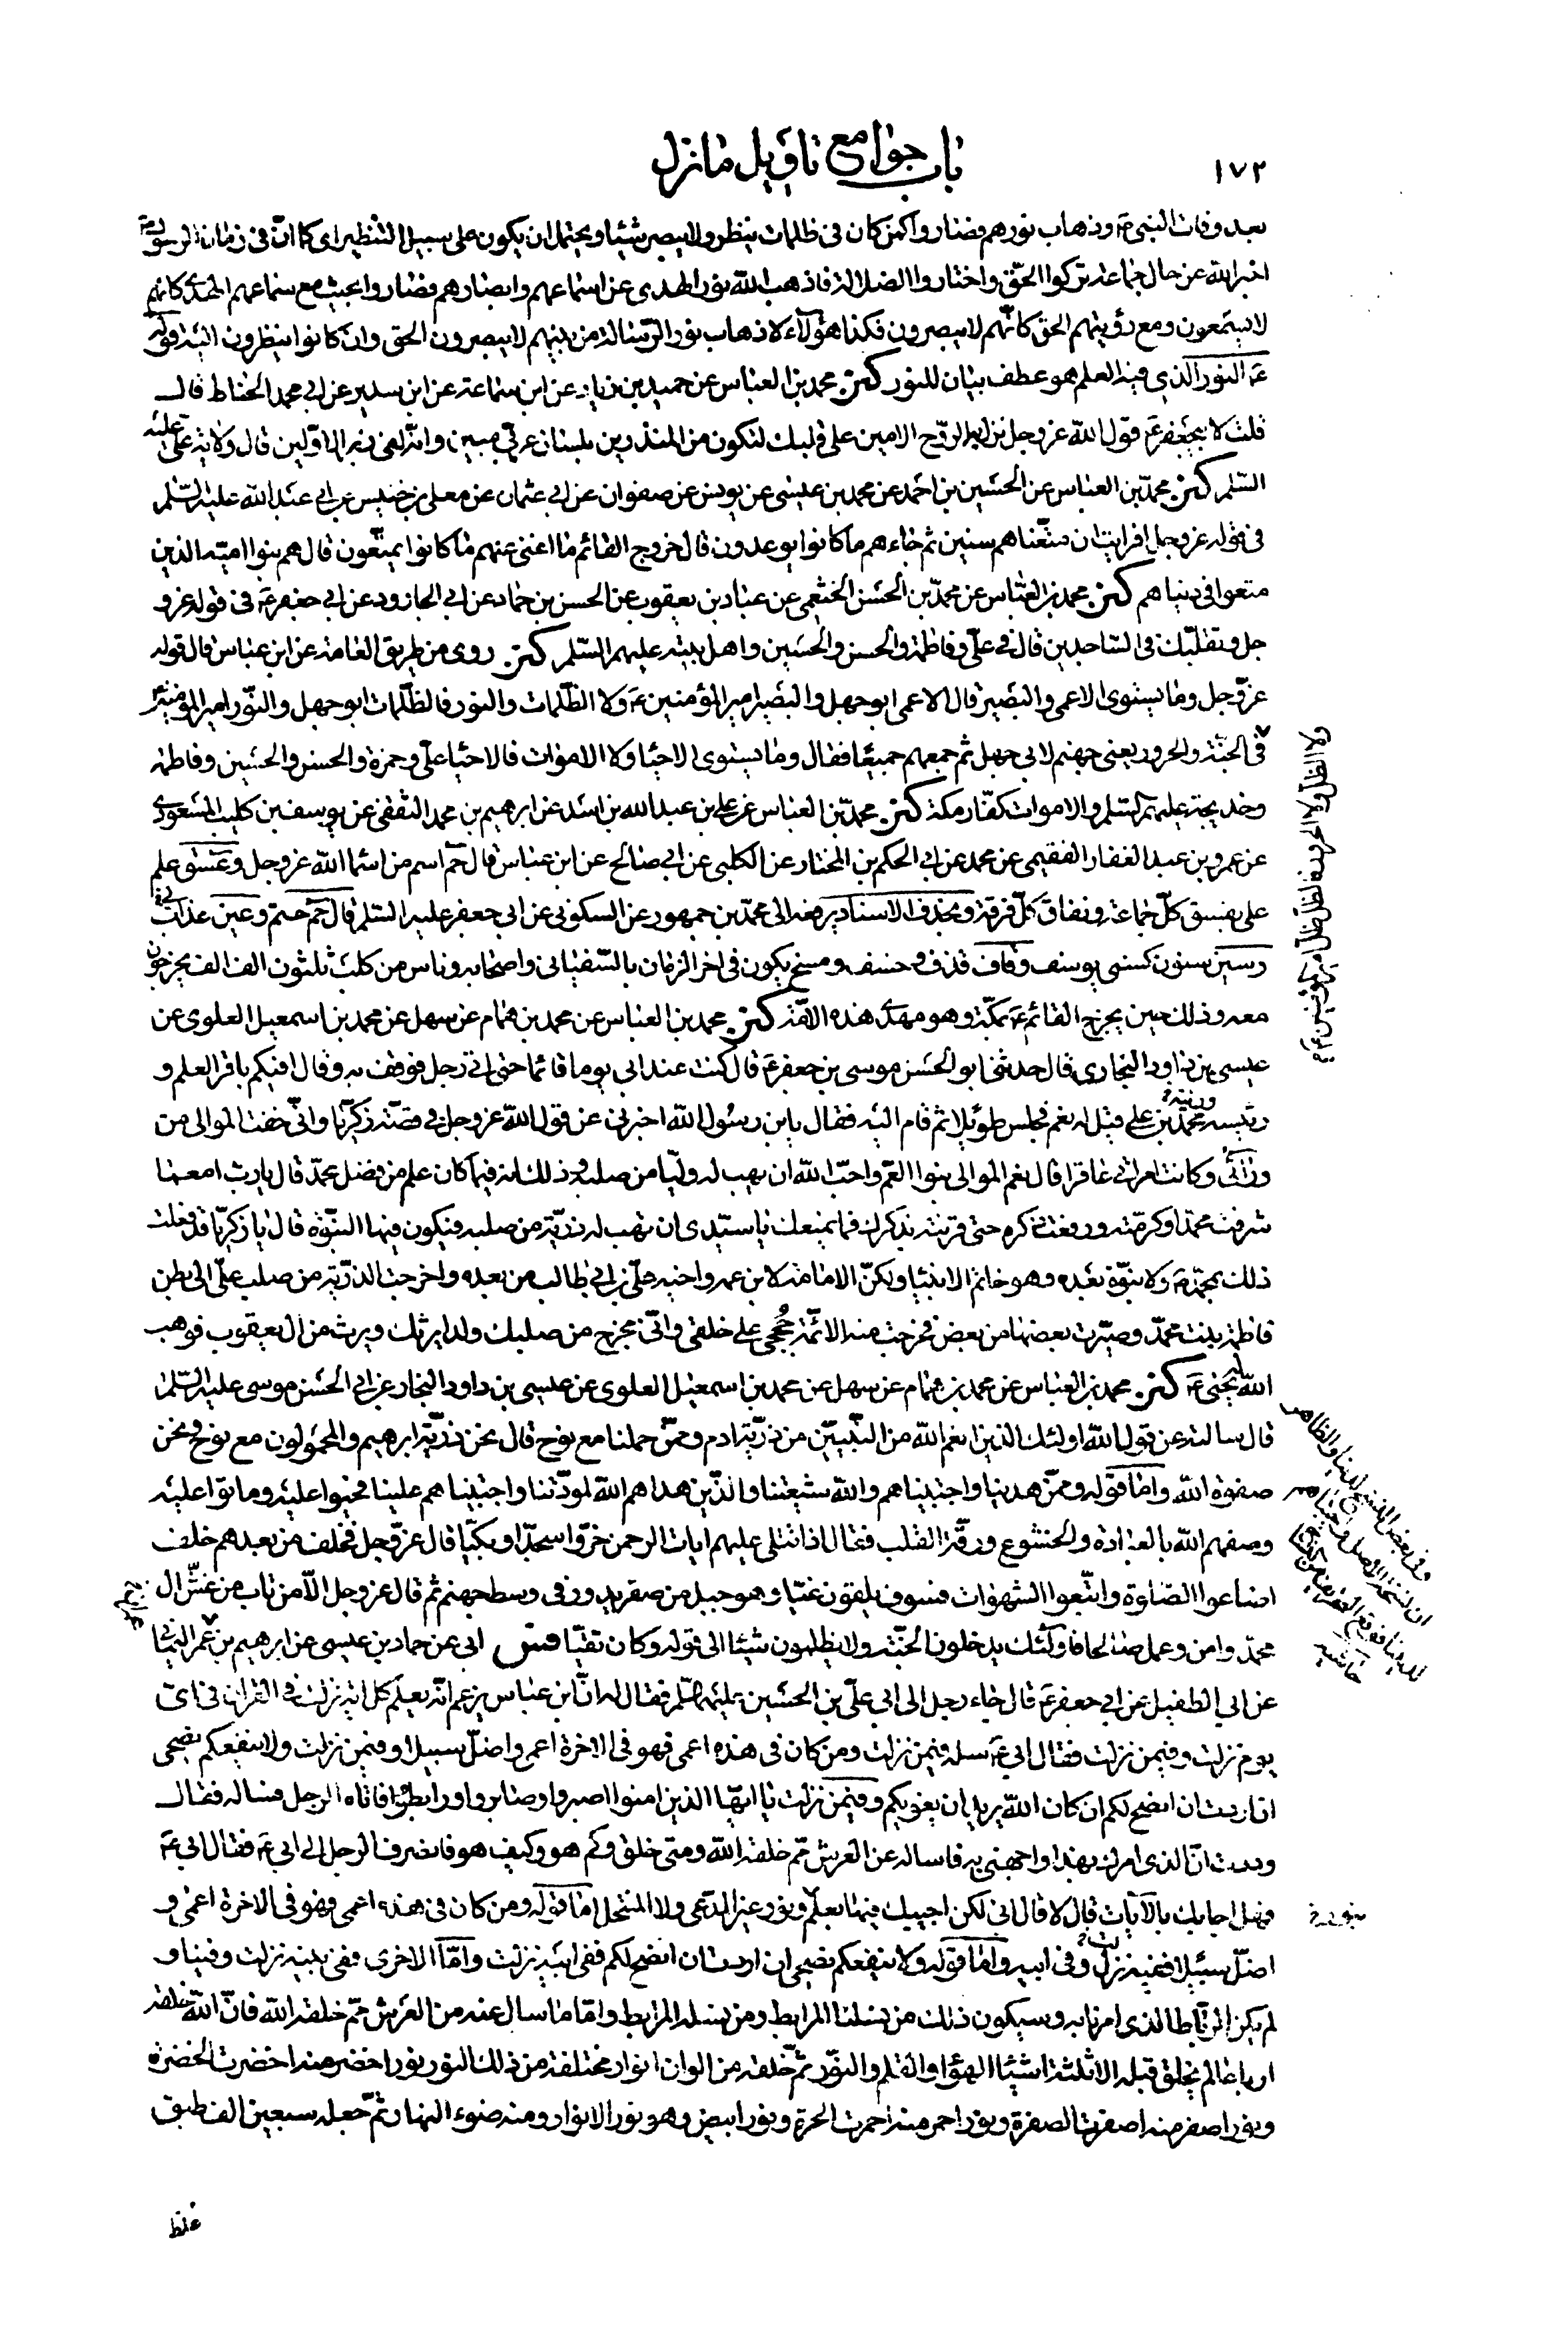 ١٧٢
باب جوامع تاويل ما نزل
بعد وفات النبى ص وذهاب نورهم فصاروا كمن كان فى ظلمات ينظر ولا يبصر شيئا ويحتمل ان يكون على سبيل التنظير اى كما انّ فى زمان الرسول ص
اخبر الله عن حال جماعة تركوا الحقّ واختاروا الضلالة فاذهب الله نور الهدى عن اسماعهم وابصارهم فصاروا بحيث مع سماعهم الهدى كانهم
لا يستمعون ومع رؤيتهم الحق كانّهم لا يبصرون فكذا هؤلاء لاذهاب نور الرّسالة من بينهم لا يبصرون الحق وان كانوا ينظرون اليه قوله
ع النور الذي فيه العلم هو عطف بيان للنور كنز محمد بن العباس عن حميد بن زياد عن ابن سماعة عن ابن سدير عن ابي محمد الحناط قال
قلت لابيجعفر ع قول الله عزوجل نزل به الروح الامين على قلبك لتكون من المنذرين بلسان عربى مبين وانه لفى زبر الاوّلين قال ولاية على عليه
السّلم كنز محمد بن العباس عن الحسين بن احمد عن محمد بن عيسى عن يونس عن صفوان عن ابى عثمان عن معلى بن خنيس عن ابى عبد الله عليه السّلم
فى قوله عزوجل افرايت ان متّعناهم سنين ثم جاءهم ما كانوا يوعدون قال خروج القائم ما اغنى عنهم ما كانوا يمتّعون قال هم بنو اميّه الذين
متعوا فى دنياهم كنز محمد بن العبّاس عن محمّد بن الحسن الخثعمى عن عباد بن يعقوب عن الحسن بن حماد عن ابى الجارود عن ابى جعفر ع فى قوله عزو
جل وتقلّبك فى السّاجدين قال فى علّى وفاطمة والحسن والحسين واهل بيته عليهم السّلم كنز روى من طريق العامة عن ابن عباس قال قوله
عزّوجل وما يستوى الاعمى والبصير قال الاعمى ابو جهل والبصير امير المؤمنين ع ولا الظّلمات والنور فالظّلمات ابو جهل والنّور امير المؤمنين
فى الجنّة والحرور يعنى جهنم لابى جهل ثم جمعهم جميعا فقال وما يستوى الاحياء ولا الاموات فالاحياء علّى وحمزة والحسن والحسين وفاطمة
وخديجة عليهم السّلم والاموات كفّار مكة كنز محمّد بن العباس عن على بن عبد الله بن اسد عن ابرهيم بن محمد الثقفى عن يوسف بن كليب المسعودى
عن عمرو بن عبد الغفار الفقيمى عن محمد عن ابى الحكم بن المختار عن الكلبى عن ابى صالح عن ابن عباس قال حم اسم من اسماء الله عزوجل وعسق علم
على بفسق كلّ جماعة ونفاق كلّ فرقة وبحذف الاسناد يرفعه الى محمّد بن جمهور عن السكونى عن ابى جعفر عليه السّلم قال حم حتم وعين عذاب
وسين سنون كسنى يوسف وقاف قذف وخسف ومسخ يكون فى اخر الزمان بالسّفيانى واصحابه وناس من كلب ثلثون الف الف يخرجون
معه وذلك حين يخرج القائم ع بمكّة وهو مهدى هذه الامّة كنز محمد بن العباس عن محمد بن همام عن سهل عن محمد بن اسمعيل العلوى عن
عيسى بن داود النجارى قال حدثنى ابو الحسن موسى بن جعفر ع قال كنت عند ابى يوما قائما حتى اتى رجل فوقف به وقال افيكم باقر العلم و
رئيسه محمّد بن على قيل له نعم فجلس طويلا ثم قام اليه فقال يابن رسول الله اخبرنى عن قول الله عزوجل فى قصّة زكريّا وانّى خفت الموالى من
ورائى وكانت امراتى عاقرا قال نعم الموالى بنوا العم واحبّ الله ان يهب له وليّا من صلبه وذلك انه فيما كان علم من فضل محمّد قال يا رب امع ما
شرفت محمّدا وكرمته ورفعت ذكره حتى قرنته بذكرك فما يمنعك يا سيّدى ان تهب له ذريّة من صلبه فيكون فيها النبّوة قال يا زكريّا قد فعلت
ذلك بمحمّد ص ولا نبوّة بعده وهو خاتم الانبياء ولكنّ الامامة لابن عمه واخيه علّى بن ابى طالب من بعده واخرجت الذرّية من صلب علّى الى بطن
فاطمة بنت محمّد وصيّرت بعضها من بعض فخرجت منه الائمّة حُججى على خلقى وانّى مخرج من صلبك ولدا يرثك ويرث من ال يعقوب فوهب
الله له يحيى ع كنز محمد بن العباس عن محمد بن همام عن سهل عن محمد بن اسمعيل العلوى عن عيسى بن داود النجار عن ابى الحسن موسى عليه السّلم
قال سالته عن قول الله اولئك الذين انعم الله من النبّيين من ذرّية ادم وممّن حملنا مع نوح قال نحن ذرّية ابرهيم والمحمولون مع نوح ونحن
صفوة الله وامّا قوله وممّن هدينا واجتبيناهم والله شيعتنا والذّين هداهم الله لمودّتنا واجتبيناهم علينا فحيوا عليه وماتوا عليه
وصفهم الله بالعبادة والخشوع ورقّة القلب فقال اذا تتلى عليهم ايات الرحمن خرّوا سجّدا وبكيّا قال عزّوجل فخلف من بعدهم خلف
اضاعوا الصّلوة واتّبعوا الشهوات فسوف يلقون غيّا وهو جبل من صفر يدور فى وسط جهنم ثم قال عزوجل الّا من تاب من غشّ ال
محمّد وامن وعمل صالحا فاولئك يدخلون الجنّة ولا يظلمون شيئا الى قوله وكان تقيّا فس ابى عن حماد بن عيسى عن ابرهيم بن عمر اليمانى
عن ابى الطفيل عن ابى جعفر ع قال جاء رجل الى ابى علّى بن الحسين عليهما السّلم فقال له انّ ابن عباس يزعم انّه يعلم كل اية نزلت فى القران فى اى
يوم نزلت وفيمن نزلت فقال ابى ع سله فيمن نزلت ومن كان فى هذه اعمى فهو فى الاخرة اعمى واضلّ سبيلا وفيمن نزلت ولا ينفعكم نصحى
ان اردت ان انصح لكم ان كان الله يريد ان يغويكم وفيمن نزلت يا ايّها الذين امنوا اصبروا وصابروا ورابطوا فاتاه الرجل فساله فقال
وددت انّ الذى امرك بهذا واجهنى به فاساله عن العرش ممّ خلقه الله ومتى خلق وكم هو وكيف هو فانصرف الرجل الى ابى ع فقال ابى ع
فهل اجابك بالايات قال لا قال ابى لكن اجيبك فيها بعلم ونور غير المدّعى ولا المنتحل امّا قوله ومن كان فى هذه اعمى فهو فى الاخرة اعمى و
اضلّ سبيلا ففيه نزلت وفى ابيه وامّا قوله ولا ينفعكم نصحى ان اردت ان انصح لكم ففى ابيه نزلت وامّا الاخرى ففى بنيه نزلت وفينا و
لم يكن الرّباط الذى امرنا به وسيكون ذلك من نسلنا المرابط ومن نسله المرابط وامّا ما سال عنه من العرش ممّ خلقه الله فانّ الله خلقه
ارباعا لم يخلق قبله الا ثلثة اشياء الهواء والقلم والنّور ثمّ خلقه من الوان انوار مختلفة من ذلك النور نور اخضر منه اخضرت الخضرة
ونور اصفر منه اصفرت الصفرة ونور احمر منه احمرت الحمرة ونور ابيض وهو نور الانوار ومنه ضوء النهار ثمّ جعله سبعين الف طبق
غلظ
ولا الظل ولا الحرور فالظل ظل امير المؤمنين ع